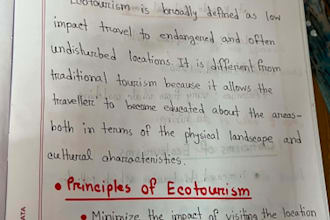 Ecotourism is broadly defined as low
impact travel to endangered and often
undisturbed locations. It is different from
traditional tourism because it allows the
traveller to become educated about the areas-
both in terms of the physical landscape and
cultural characteristics.
• Principles of Ecotourism
• Minimize the impact of visiting the location